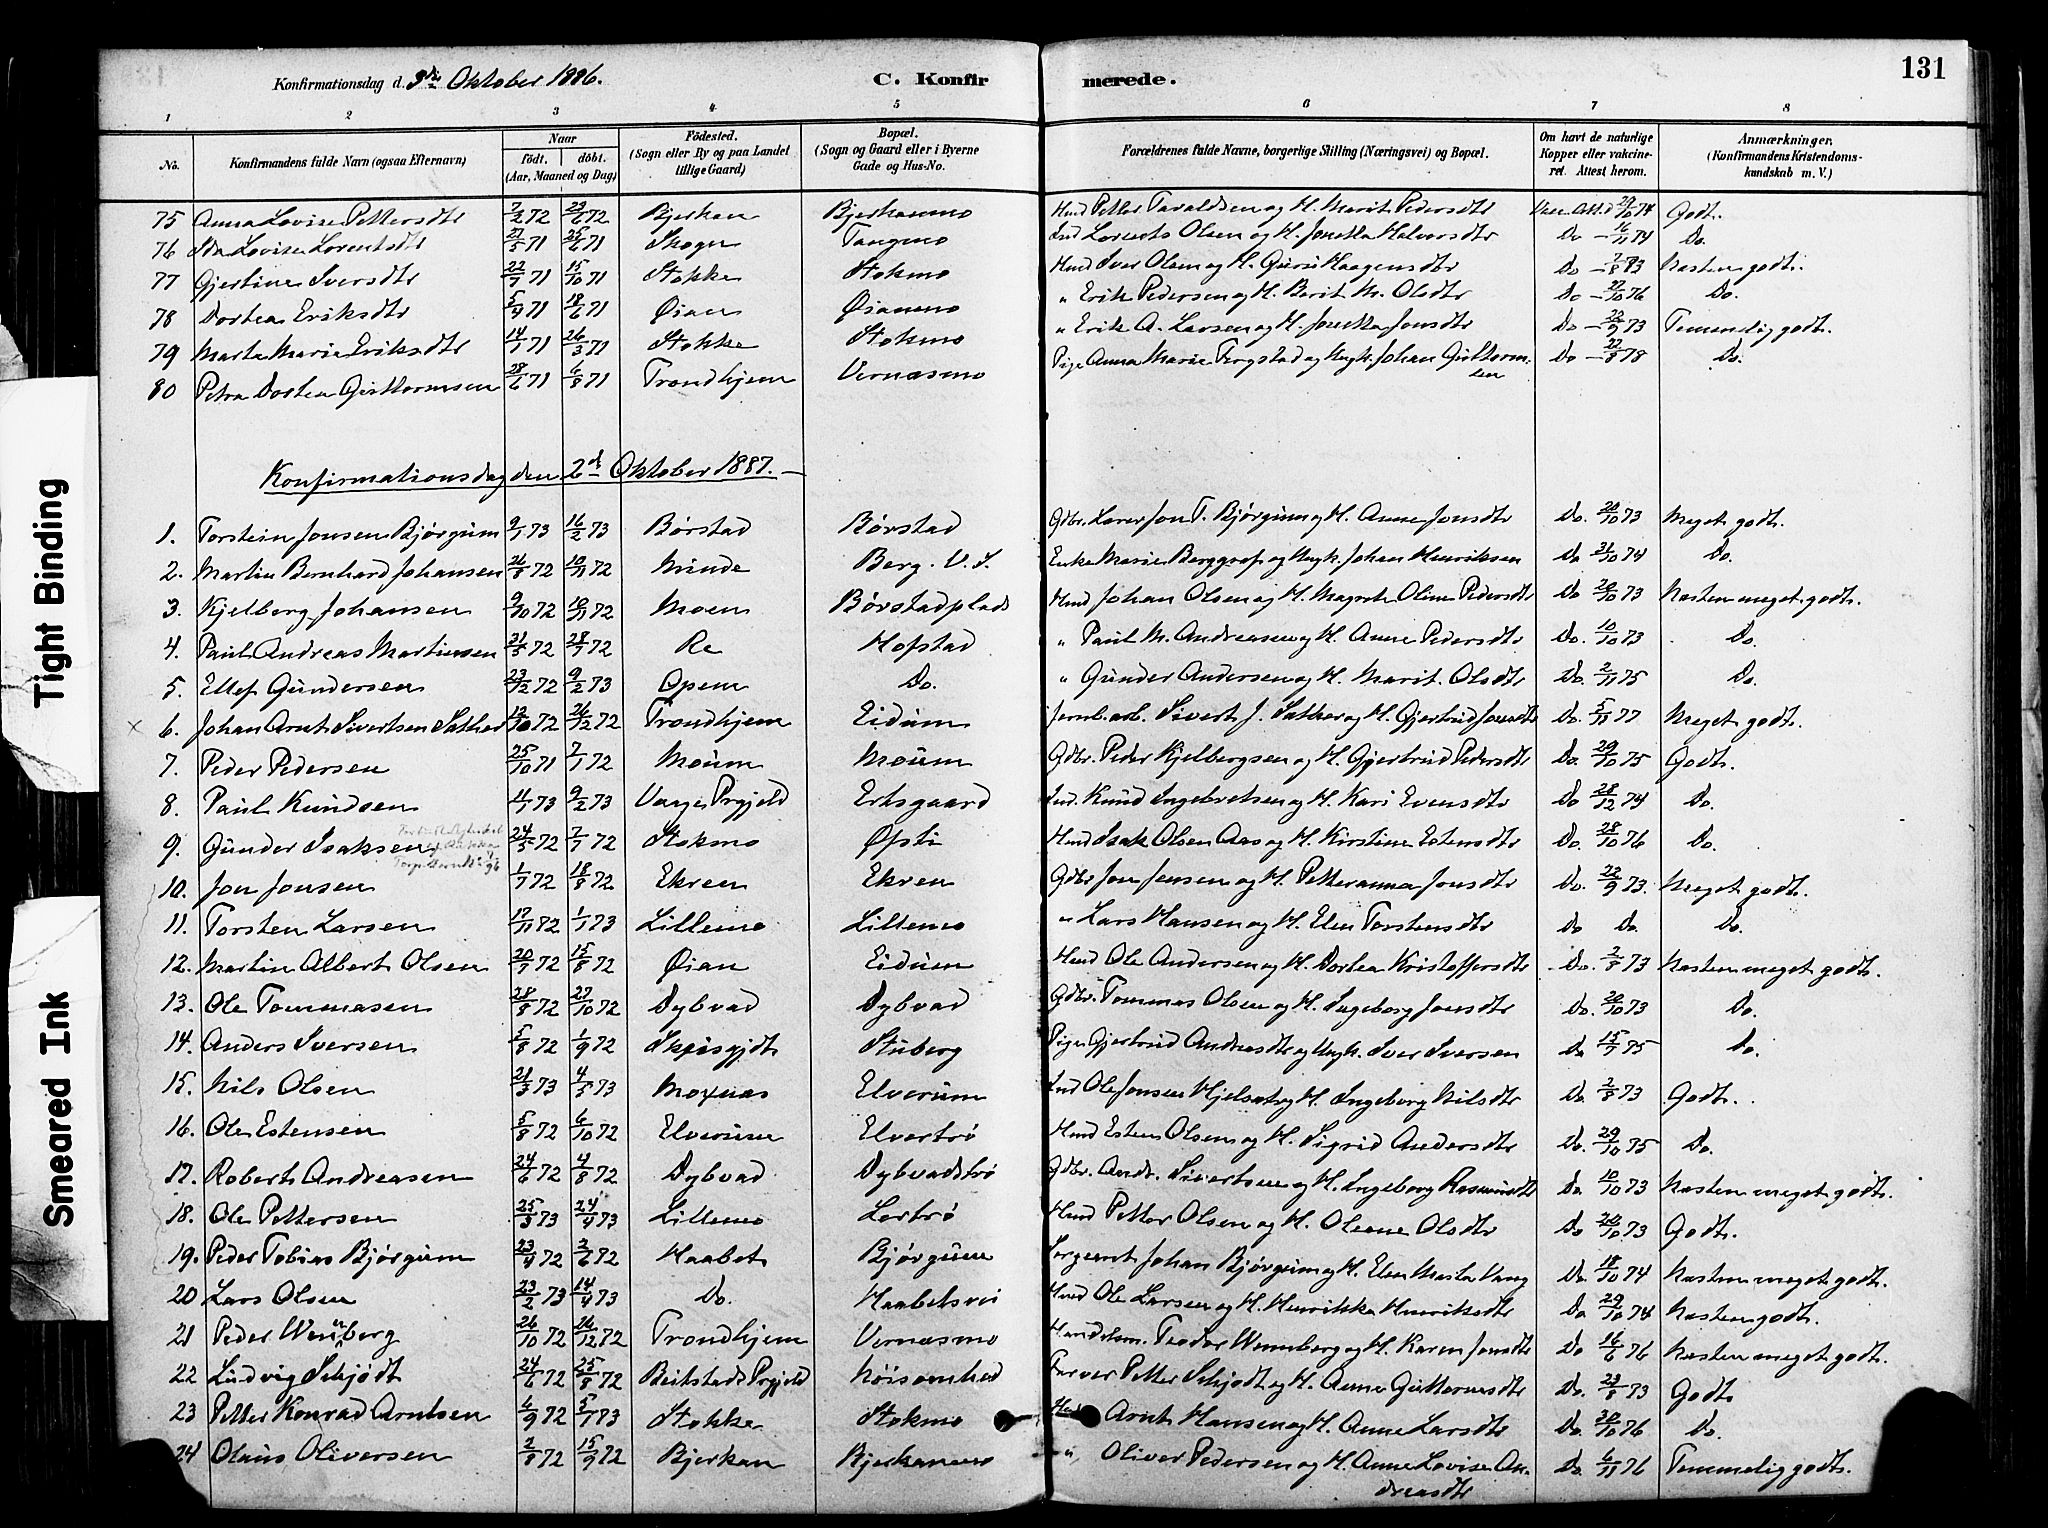 Konfirmationsdag d. 3die Oktober 1886. C. Konfirmerede. 131
1 2 3 4 5 6 7 8
No. Konfirmandens fulde Navn (ogsaa Efternavn) Naar födt. döbt. (Aar, Maaned og Dag) Födested. (Sogn eller By og paa Landet tillige Gaard) Bopæl. (Sogn og Gaard eller i Byerne Gade og Hus-No. Forældrenes fulde Navne, borgerlige Stilling (Næringsvei) og Bopæl. Om havt de naturlige Kopper eller vakcineret. Attest herom. Anmærkninger. (Konfirmandens Kristendomskundskab m. V.)
75 Anna Lovise Pettersdtr 7/2 72 23/6 72 Bjerkan Bjerkanmo Husd Petter Taraldsen og H. Marit Pedersdtr Vacc. Att. d 29/10 74 Godt.
76 Ida Lovise Lorentsdtr 27/5 71 25/6 71 Skogn Tangmo Ind Lorents Olsen og H. Jonetta Halvorsdtr Do — 16/11 74 Do.
77 Gjertine Iversdtr 22/9 71 15/10 71 Stokke Stokmo Husd Iver Olsen og H. Guru Haagensdtr Do — 7/8 73 Næsten godt.
78 Dortea Eriksdtr 5/9 71 18/6 71 Øian Øianmo " Erik Pedersen og H. Berit M. Olsdtr Do — 27/10 76 Do.
79 Marta Marie Eriksdtr 14/1 71 26/3 71 Stokke Stokmo " Erik A. Larsen og H. Jonetta Jonsdtr Do — 22/9 73 Temmelig godt.
80 Petra Dortea Guttormsen 28/6 71 6/8 71 Trondhjem Vernæsmo Pige Anna Marie Fergstad og Ungk. Johan Guttormsen Do — 22/8 78 Do.
Konfirmationsdag den 2den Oktober 1887. —
1. Torstein Jonsen Bjørgum 9/1 73 16/2 73 Børstad Børstad Gdbr. Lærer Jon T. Bjørgum og H. Anne Jonsdtr Do. 20/10 73 Meget godt.
2. Martin Bernhard Johansen 26/8 72 10/11 72 Minde Berg. V. S. Enke Marie Berggraf og Ungk. Johan Henriksen Do 31/10 74 Do.
3. Kjelberg Johansen 9/10 72 10/11 72 Moen Børstadplads Husd Johan Olsen og H. Magrete Oline Pedersdtr Do 20/10 73 Næsten meget godt.
4. Paul Andreas Martinsen 21/5 72 28/7 72 Re Hofstad " Paul M. Andreasen og H. Anne Pedersdtr Do. 10/10 73 Do.
5. Ellef Gundersen 23/12 72 9/2 73 Opem Do. " Gunder Andersen og H. Marit Olsdtr Do. 2/11 75 Do.
6. Johan Arnt Sivertsen Sæther 12/10 72 26/12 72 Trondhjem Eidum Jernb.arb. Sivert J. Sæther og H. Gjertrud Jonsdtr Do. 5/11 77 Meget godt.
7. Peder Pedersen 25/10 71 7/1 72 Moum Moum Gdbr. Peder Kjelbergsen og H. Gjertrud Pedersdtr Do. 29/10 75 Godt.
8. Paul Knudsen 4/1 73 9/2 73 Vaage Prgjeld Ertsgaard Ind. Knud Ingebretsen og H. Kari Evensdtr Do 28/12 74 Do.
9. Gunder Isaksen 24/5 72 7/7 72 Stokmo Øfsti Husd Isak Olsen Aas og H. Kirstine Estensdtr Do. 28/10 76 Do.
10. Jon Jonsen 1/7 72 18/8 72 Ekren Ekren Gdbr Jon Jensen og H. Petteranna Jonsdtr Do. 22/9 73. Meget godt.
11. Torsten Larsen 17/11 72 1/1 73 Lillemo Lillemo " Lars Hansen og H. Elen Torstensdtr Do Do. Do.
12. Martin Albert Olsen 20/7 72 15/8 72 Øian Eidum Husd Ole Andersen og H. Dortea Kristoffersdtr Do. 7/8 73 Næsten meget godt.
13. Ole Tommasen 28/8 72 27/10 72 Dybvad Dybvad Gdbr. Tommas Olsen og H. Ingeborg Jonsdtr Do. 20/10 73 Do.
14. Anders Iversen 5/8 72 1/9 72 Skjesgjdt Stuberg Pige Gjertrud Andreasdtr og Ungk. Iver Iversen Do 15/7 75 Do.
15. Nils Olsen 21/3 73 4/5 73 Moxnæs Elverum Ind Ole Jonsen Hjelset og H. Ingeborg Nilsdtr Do. 7/8 73 Godt.
16. Ole Estensen 5/8 72 6/10 72 Elverum Elvertrø Husd Esten Olsen og H. Sigrid Andersdtr Do. 29/10 75 Do.
17. Robert Andreasen 24/6 72 4/8 72 Dybvad Dybvadstrø Gdbr. Andr. Sivertsen og H. Ingeborg Rasmusdtr Do. 10/10 73 Næsten meget godt.
18. Ole Pettersen 25/3 73 24/4 73 Lillemo Lertrø Husd Petter Olsen og H. Oleane Olsdtr Do 20/10 73 Godt.
19. Peder Tobias Bjørgum 23/4 72 2/6 72 Haabet Bjørgum Sergeant Johan Bjørgum og H. Elen Marta Vang Do. 18/10 74 Næsten meget godt.
20 Lars Olsen 23/2 73 14/4 73 Do. Haabetsvei Husd Ole Larsen og H. Henrikka Henriksdtr Do 29/10 74 Næsten godt.
21 Peder Wennberg 26/10 72 26/12 72 Trondhjem Vernæsmo Handelsm. Teodor Wennberg og H. Karen Jonsdtr Do 16/6 76 Næsten meget godt.
22 Ludvig Schjødt 24/6 72 25/8 72 Beitstads Prgjeld Nøisomhed Farver Petter Schjødt og H. Anne Guttormsdtr Do. 23/8 73 Godt
23 Petter Konrad Arntsen 6/9 72 5/1 73 Stokke Stokmo Husd Arnt Hansen og H. Anne Larsdtr Do. 30/10 76 Do.
24 Olaus Oliversen 2/8 72 15/9 72 Bjerkan Bjerkanmo " Oliver Pedersen og H. Anne Lovise Andreasdtr Do. 6/11 76 Temmelig godt.
Tight Binding
Smeared Ink